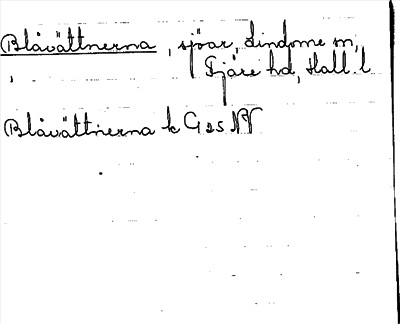 Blåvättnerna, sjöar, Lindome sn,
Fjäre hd, Hall. l.
Blåvättnerna k G 25 NV